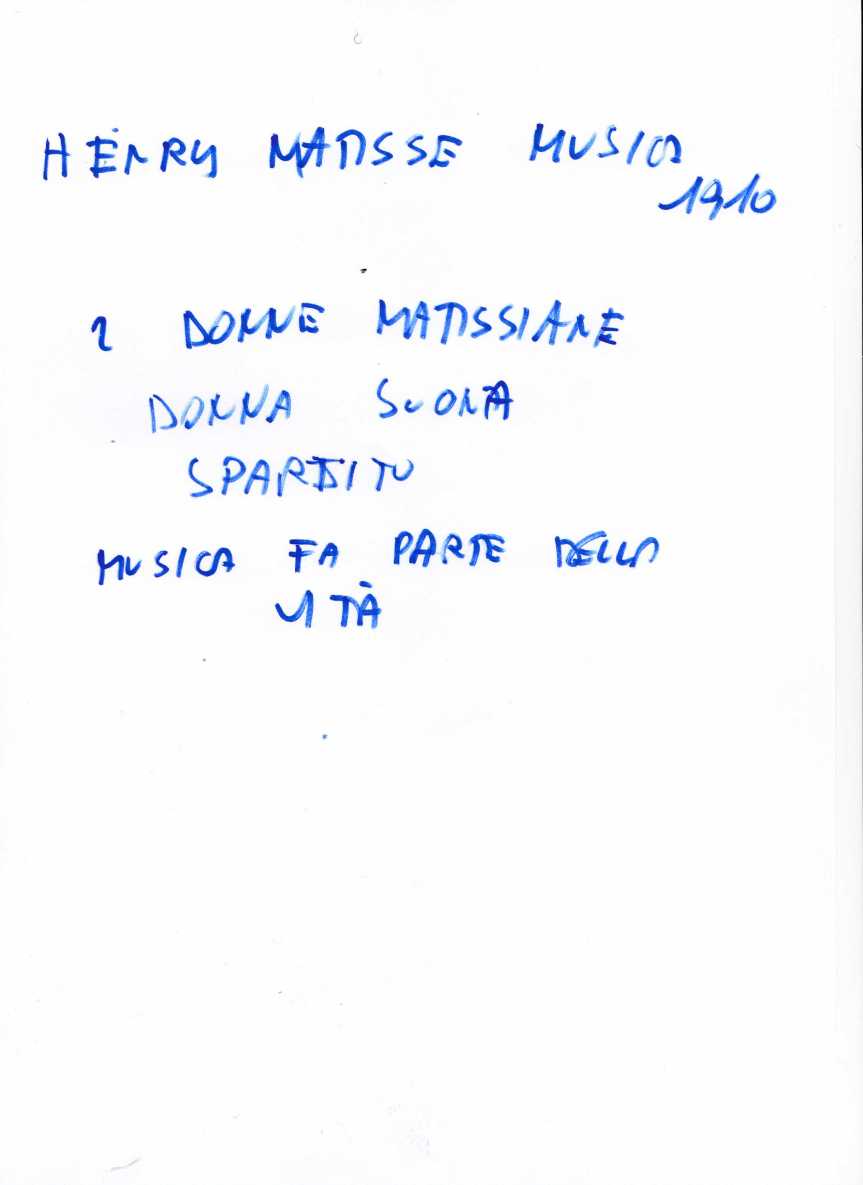 HENRY MATISSE MUSICA
1910
2 DONNE MATISSIANE
DONNA SUONA
SPARTITO
MUSICA FA PARTE DELLA
VITA